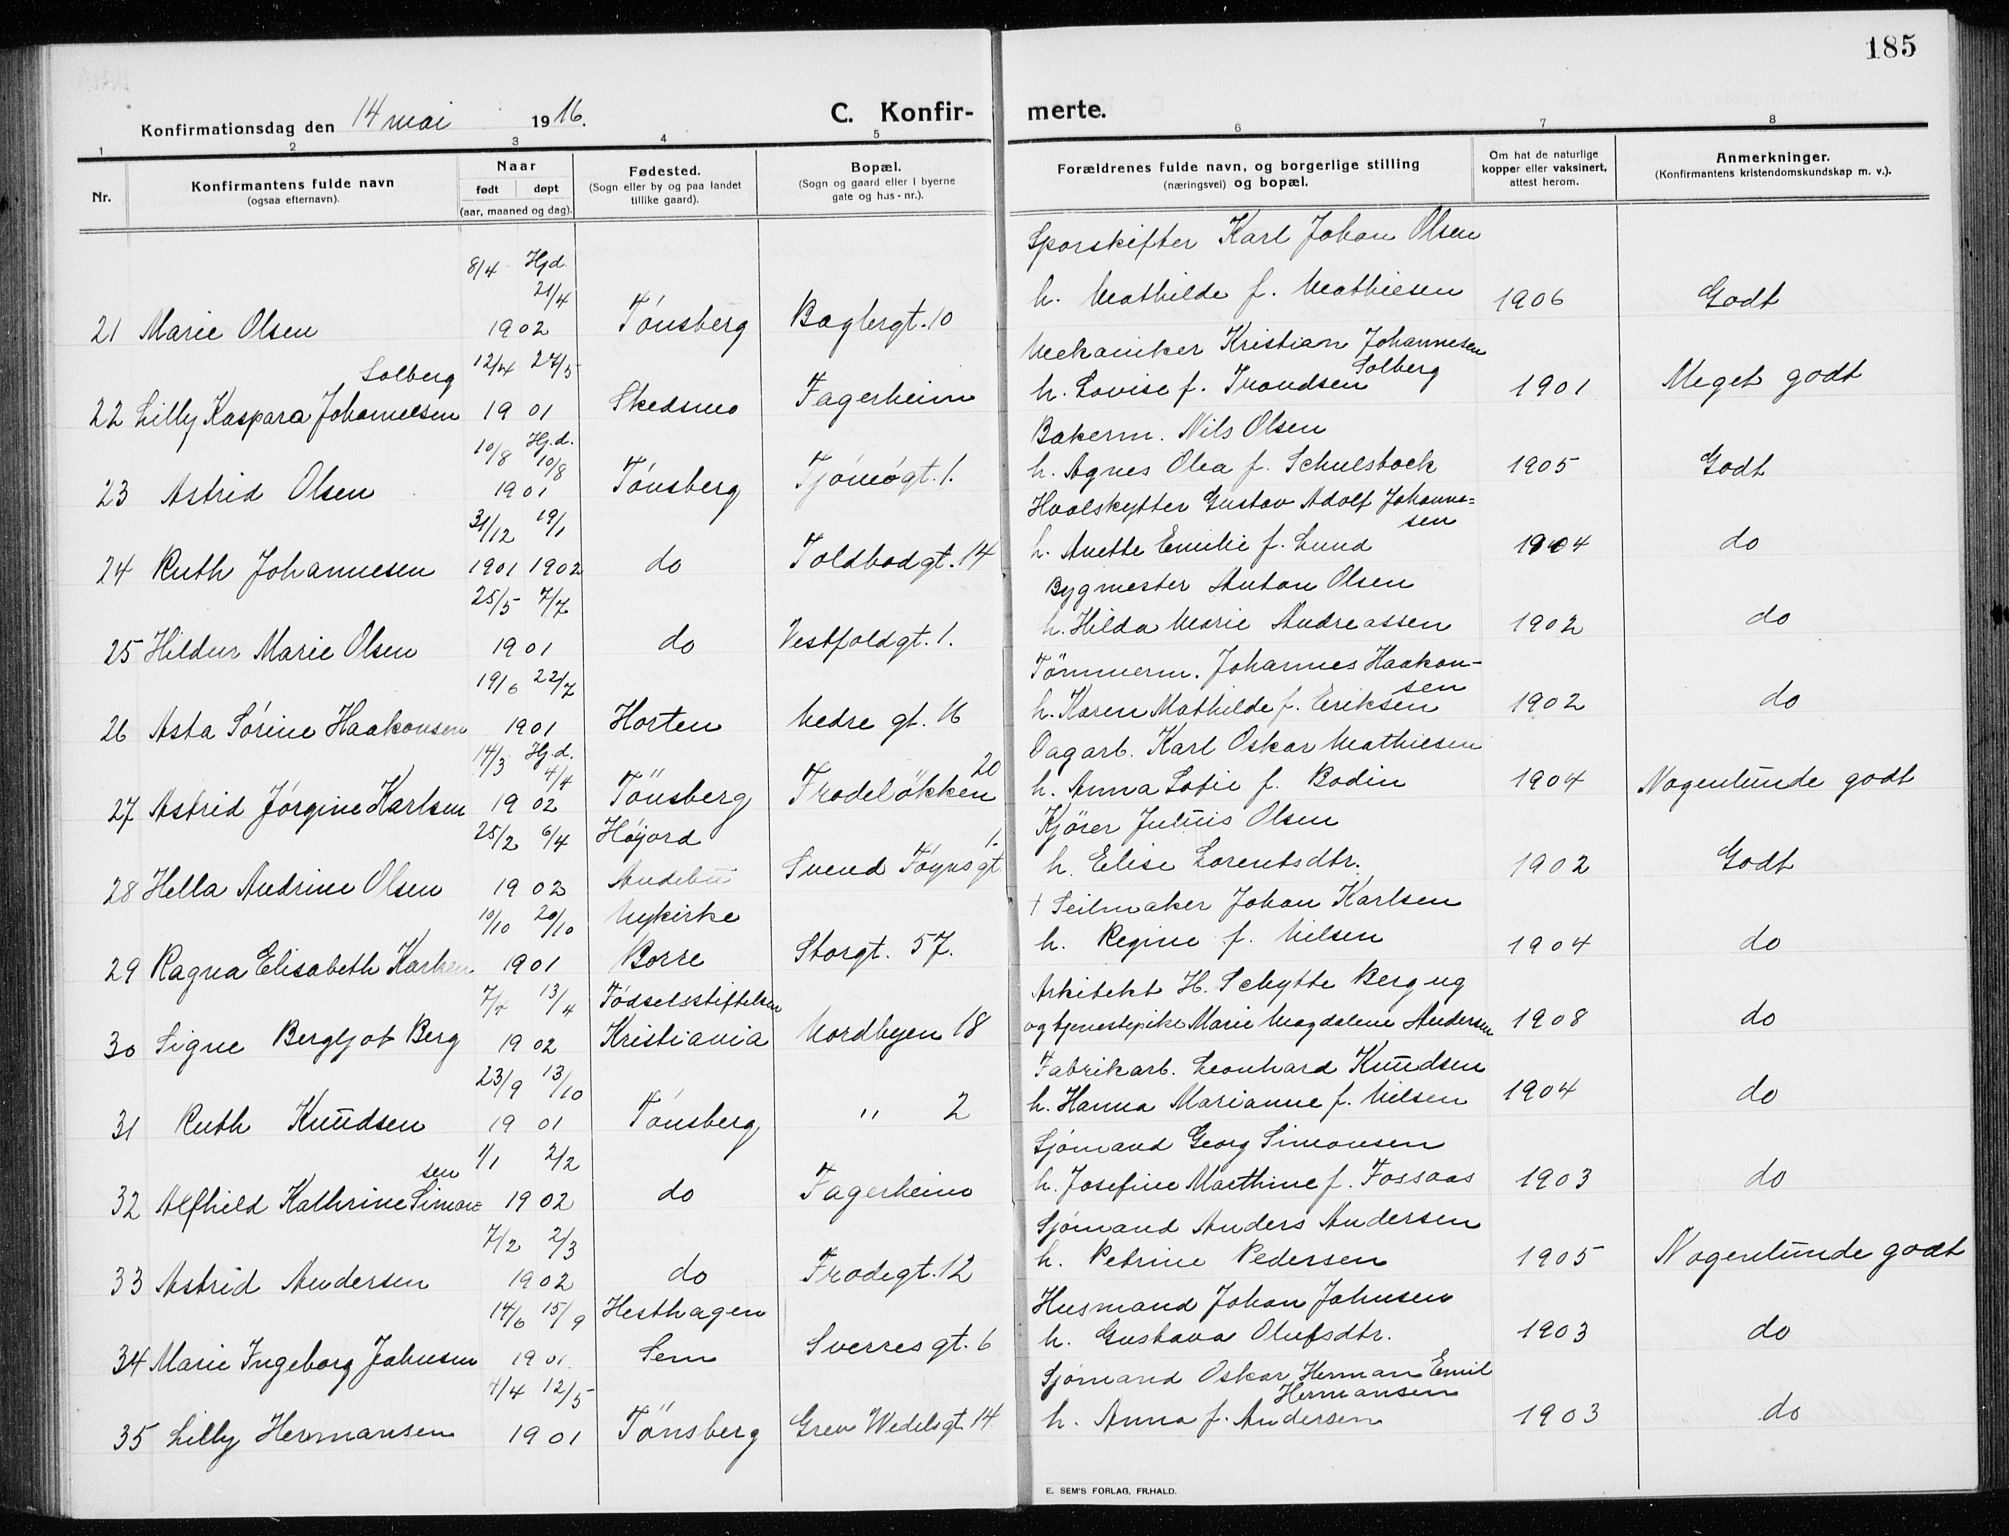 185
Konfirmationsdag den 14 mai 1916.
C. Konfir-
merte.
1 2 3 4 5 6 7 8
Nr.
Konfirmantens fulde navn
(ogsaa efternavn).
Naar
født døpt
(aar, maaned og dag).
Fødested.
(Sogn eller by og paa landet
tillike gaard).
Bopæl.
(Sogn og gaard eller i byerne
gate og hus-nr.).
Forældrenes fulde navn, og borgerlige stilling
(næringsvei) og bopæl.
Om hat de naturlige
kopper eller vaksinert,
attest herom.
Anmerkninger.
(Konfirmantens kristendomskundskap m. v.).
Sporskifter Karl Johan Olsen
8/4 Hjd. 21/4
21 Marie Olsen 1902 Tønsberg Baglergt. 10 h. Mathilde f. Mathiesen 1906 Godt
Mekaniker Kristian Johannesen
Solberg 12/4 27/5 Solberg
22 Lilly Kaspara Johannesen 1901 Skedsmo Fagerheim h. Lovise f. Trondsen 1901 Meget godt
10/8 Hj.d. 10/8 Bakerm. Nils Olsen
23 Astrid Olsen 1901 Tønsberg Tjømøgt. 1. h. Agnes Olea f. Schulstock 1905 Godt
31/12 19/1 Hvalskytter Gustav Adolf Johanne=
sen
24 Ruth Johannesen 1901 1902 do Toldbodgt. 14 h. Anette Emilie f. Lund 1904 do
25/5 7/7 Bygmester Anton Olsen
25 Hildur Marie Olsen 1901 do Vestfoldgt. 1. h. Hilda Marie Andreassen 1902 do
19/6 22/7 Tömmerm. Johannes Haakon-
sen
26 Asta Sørine Haakonsen 1901 Horten Nedre gt. 16 h. Karen Mathilde f. Eriksen 1902 do
14/3 Hj.d. 4/4 Dagarb. Karl Oskar Mathiesen
27 Astrid Jørgine Karlsen 1902 Tönsberg Frodeløkken 20 h. Anna Sofie f. Bodin 1904 Nogenlunde godt
25/2 6/4 Høyjord Kjører Julius Olsen
28 Hella Andrine Olsen 1902 Andebu Svend Foynsgt 1. h. Elise Lorentsdtr. 1902 Godt
10/10 20/10 Nykirke † Seilmaker Johan Karlsen
29 Ragna Elisabeth Karlsen 1901 Borre Storgt. 57. h. Regine f. Nilsen 1904 do
7/4 13/4 Fødselsstiftelsen Arkitekt H. Schytte Berg ug
30 Signe Bergljot Berg 1902 Kristiania Nordbyen 18 og tjenestepike Marie Magdalene Andersen 1908 do
23/9 13/10 Fabrikarb. Leonhard Knudsen
31 Ruth Knudsen 1901 Tønsberg " 2 h. Hanna Marianne f. Nilsen 1904 do
1/1 2/2 Sjømand Georg Simonsen
sen
32 Alfhild Kathrine Simon= 1902 do Fagerheim h. Josefine Marthine f. Fossaas 1903 do
7/2 2/3 Sjømand Anders Andersen
33 Astrid Andersen 1902 do Frodegt. 12 h. Petrine Pedersen 1905 Nogenlunde godt
14/6 15/9 Hesthagen Husmand Johan Johnsen
34 Marie Ingeborg Johnsen 1901 Sem Sverresgt. 6 h. Gustava Olufsdtr. 1903 do
4/4 12/5 Sjømand Oskar Herman Emil
Hermansen
35 Lilly Hermansen 1901 Tønsberg Grev Wedelsgt. 14 h. Anna f. Andersen 1903 do
E. SEM'S FORLAG, FR.HALD.